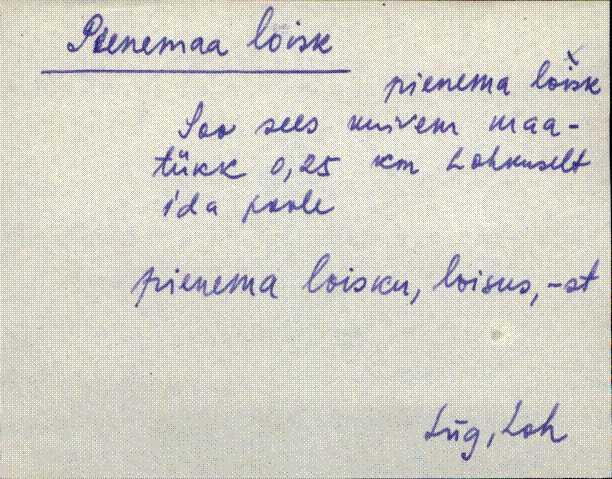 Pienemaa loisk
pienema loisk
Soo sees kuivem maa-
tükk 0,25 km Lohkuselt
ida poole
pienema loisku, loisus, -st
Lüg, Loh